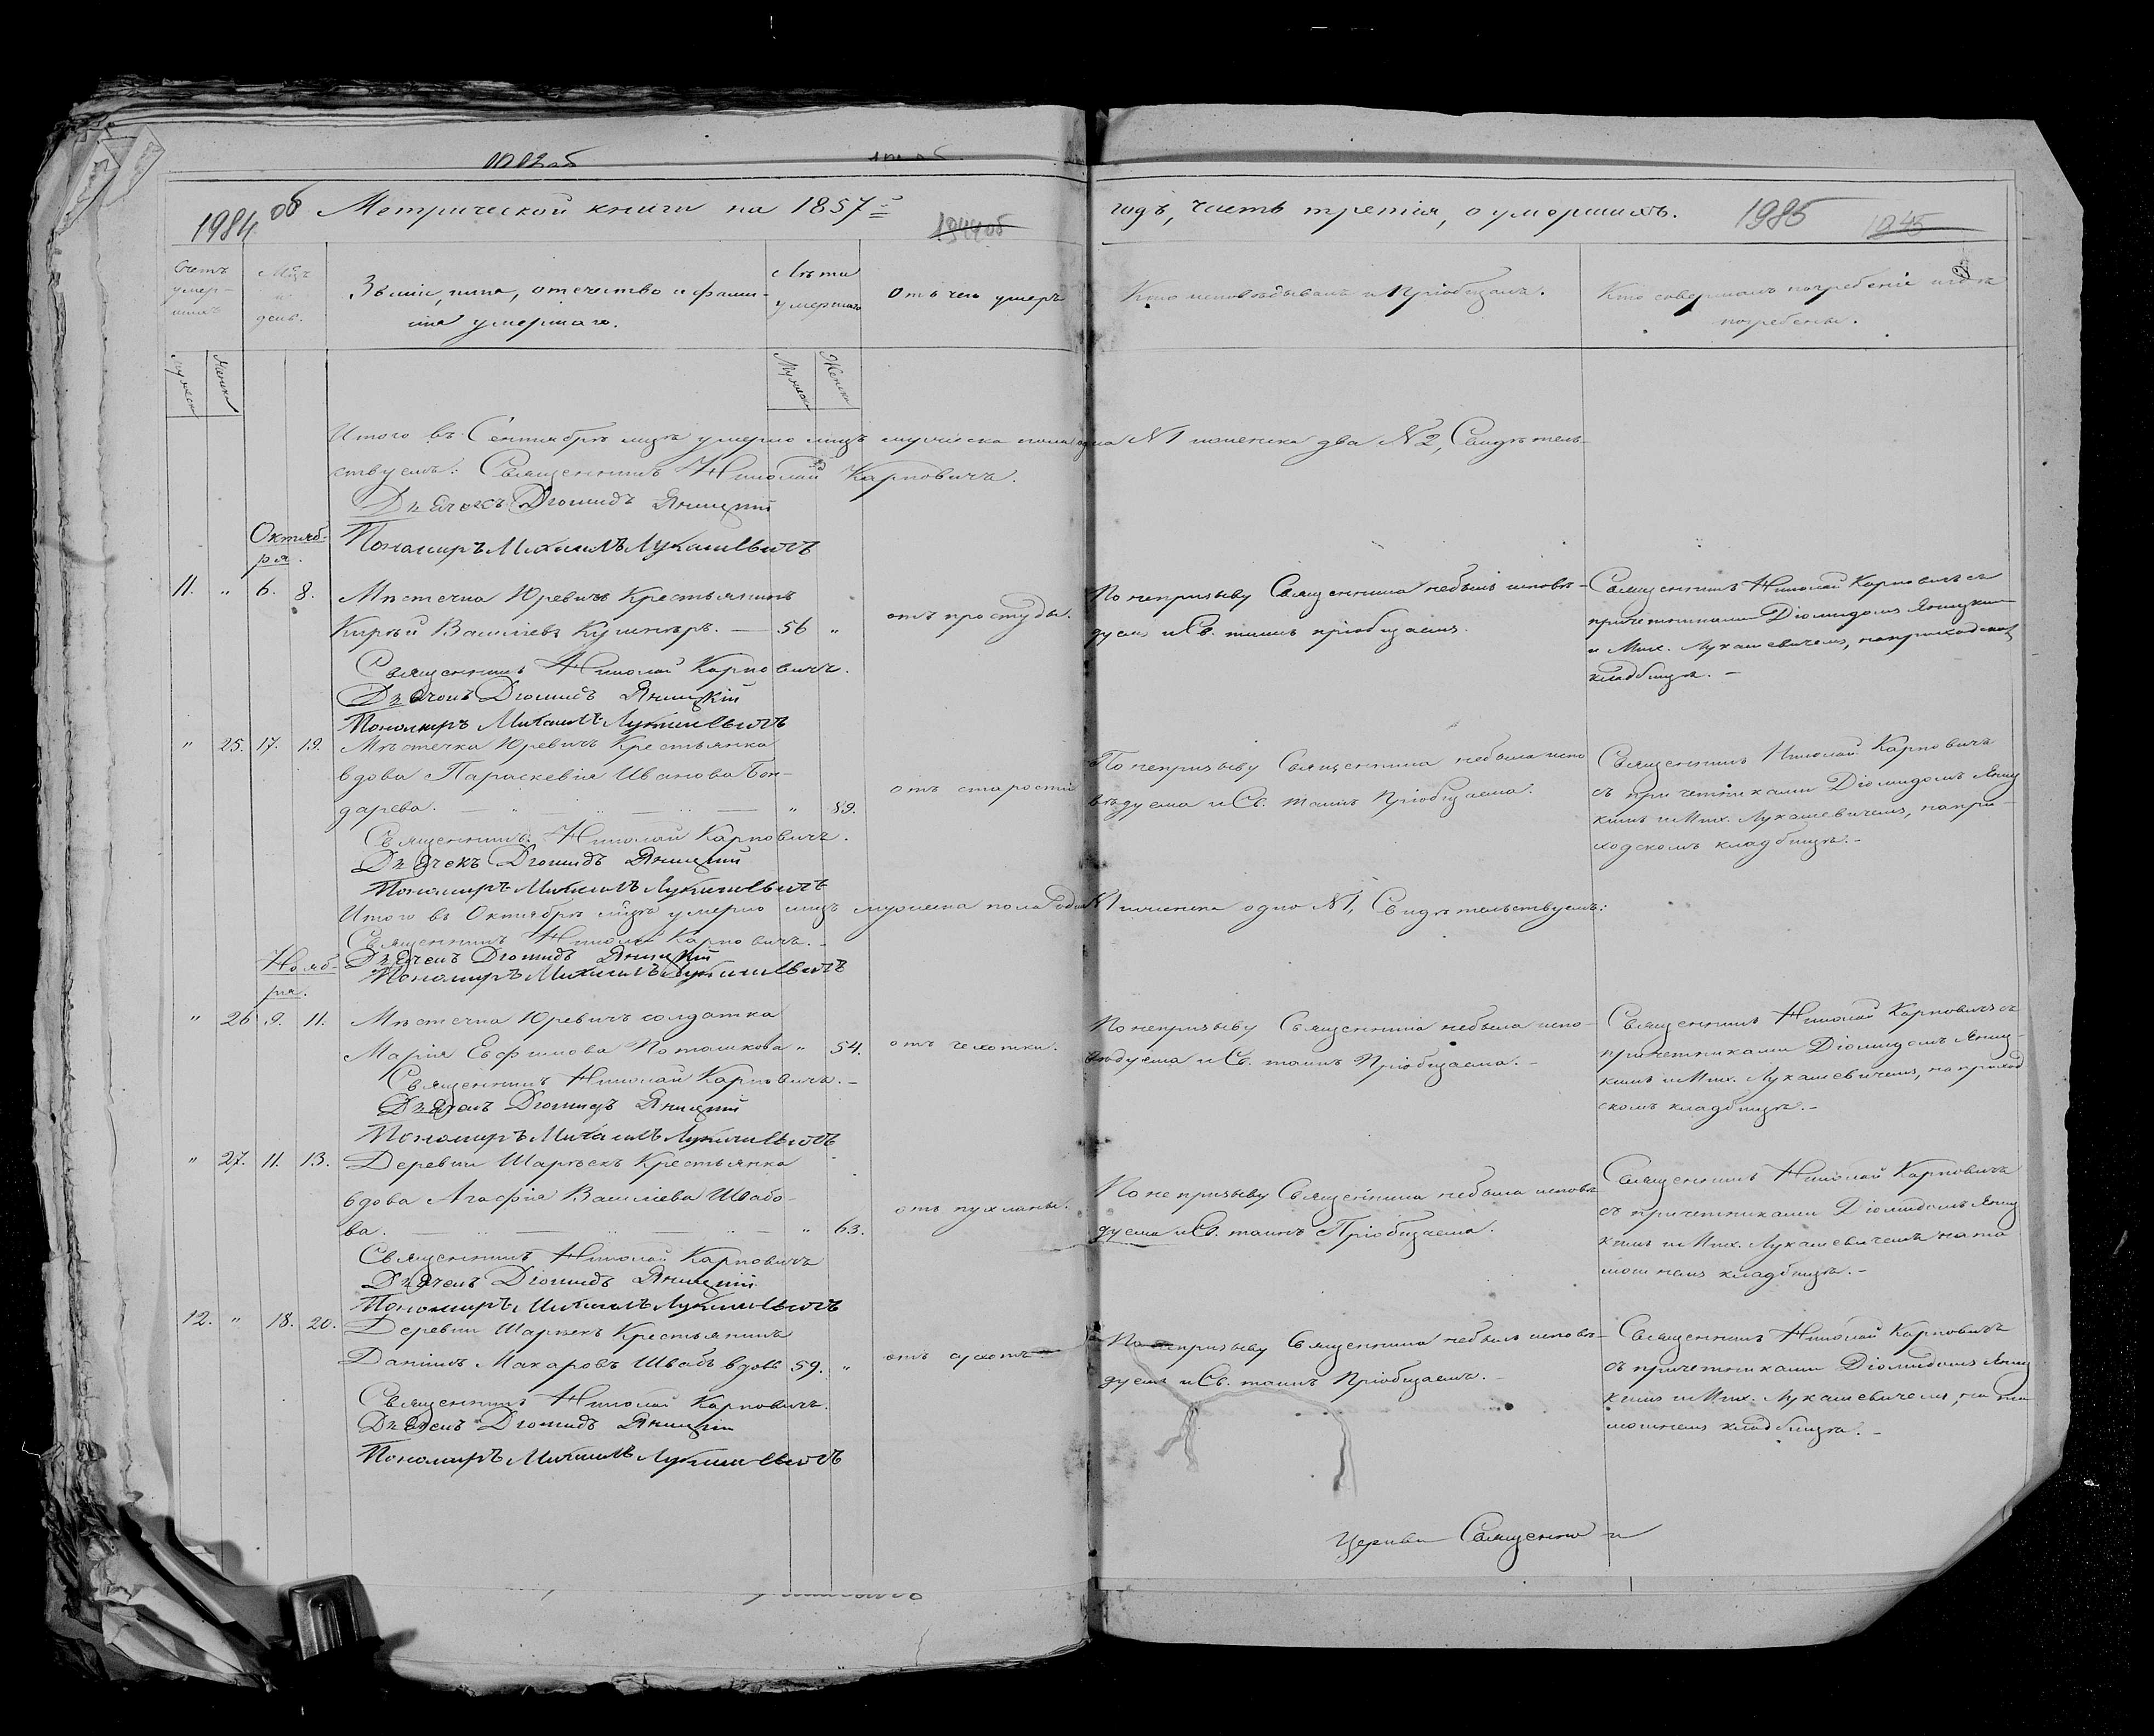 1984 об Метрической книги на 1857й
1944 об
годъ, часть третія, о умершихъ. 1985 1945
Счетъ умершихъ
Мѣцъ и день.
Званіе, имя, отечество и фамилія умершаго.
Лѣта умершаго
Отъ чего умеръ
Кто исповѣдывалъ и Пріобщалъ.
Кто совершалъ погребеніе и гдѣ погребены.
Мужеск Женска
Мужеска Женска
Итого въ Сентябрѣ мцѣ умерло лицъ мужеска пола одна N1 и женска два N2, Свидѣтель-
ствуемъ: Священникъ Николай Карповичъ.
Дьячекъ Діомидъ Яницкій
Пономаръ Михаилъ Лукашевичъ
Октяб-
ря.
11. " 6. 8. Мѣстечка Юревичъ Крестьянинъ
Василіевъ 56 " отъ простуды.
Священникъ Николай Карповичъ.
Дьячокъ Діомидъ Яницкій
Пономаръ Михаилъ Лукашевичъ
По непризыву Священника небылъ исповѣ-
дуемъ и Св. таинъ пріобщаемъ.
Священникъ Николай Карповичъ съ
причетниками Діомидомъ Яницкимъ
и Мих. Лукашевичемъ, на приходскомъ
кладбищѣ. –
" 25. 17. 19. Мѣстечка Юревичъ Крестьянка
вдова Параскевія Иванова Бон-
дарева. " 89. отъ старости
Священникъ Николай Карповичъ.
Дьячекъ Діомидъ Яницкій
Пономаръ Михаилъ Лукашевичъ
По непризыву Священника небыла испо-
вѣдуема и Св. таинъ Пріобщаема.
Священникъ Николай Карповичъ
съ причетниками Діомидомъ Яниц
кимъ и Мих. Лукашевичемъ, на при-
ходскомъ кладбищѣ. –
Итого въ Октябрѣ мцѣ умерло лицъ мужеска пола одна N1 и женска одно N1, Свидѣтельствуемъ:
Священникъ Николай Карповичъ. –
Дьячекъ Діомидъ Яницкій
Пономаръ Михаилъ Лукашевичъ
Нояб-
ря.
" 26 9. 11. Мѣстечка Юревичъ солдатка
Марія Евфимова Поташкова " 54. отъ чахотки.
Священникъ Николай Карповичъ. –
Дьячекъ Діомидъ Яницкій
Пономаръ Михаилъ Лукашевичъ
По непризыву Священника небыла испо-
вѣдуема и Св. таинъ Пріобщаема. –
Священникъ Николай Карповичъ съ
причетниками Діомидомъ Яниц-
кимъ и Мих. Лукашевичемъ, на приход
скомъ кладбищѣ. –
" 27. 11. 13. Деревни Крестьянка
вдова Агафія Василіева Швабо-
ва. " 63. отъ пухлины.
Священникъ Николай Карповичъ
Дьячекъ Діомидъ Яницкій
Пономаръ Михаилъ Лукашевичъ
По непризыву Священника небыла исповѣ
дуема и Св. таинъ Пріобщаема.
Священникъ Николай Карповичъ
съ причетниками Діомидомъ Яниц
кимъ и Мих. Лукашевичемъ на та
мошнемъ кладбищѣ. –
12. " 18. 20. Деревни Крестьянинъ
Даніилъ Макаровъ Швабъ вдовъ 59. " отъ сухотъ
Священникъ Николай Карповичъ.
Дьячекъ Діомидъ Яницкій
Пономаръ Михаилъ Лукашевичъ
По непризыву Священника небылъ исповѣ-
дуемъ и Св. таинъ Пріобщаемъ. –
Священникъ Николай Карповичъ
съ причетниками Діомидомъ Яниц
кимъ и Мих. Лукашевичемъ, на та
мошнемъ кладбищѣ. –
Церкви Священно